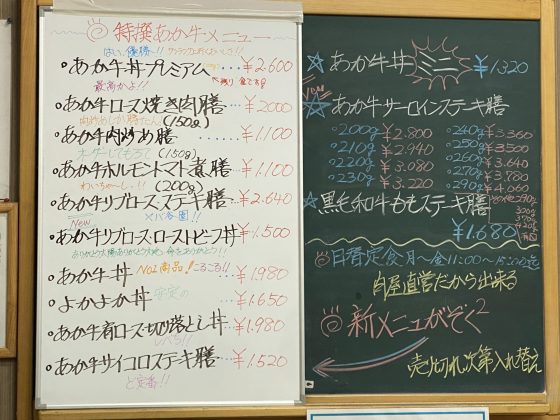 特撰あか牛メニュー
はい、優勝〜!!
あか牛丼プレミアム ¥2.600
最高かよ!!
あか牛ロース焼き肉膳 ¥2000
(150g)
あか牛肉炒め膳 ¥1.100
(150g)
あか牛ホルモントマト煮膳 ¥1.100
(200g)
あか牛リブロースステーキ膳 ¥2.640
New
あか牛リブロースローストビーフ丼 ¥1.500
あか牛丼 No1商品! ¥1980
よかよか丼 安定の ¥1.650
あか牛肩ロース切り落とし丼 ¥1.980
あか牛サイコロステーキ膳 ¥1.520
と定番!!
☆あか牛丼 ミニ ¥1320
☆あか牛サーロインステーキ膳
200g ¥2.800 240g ¥3.360
210g ¥2.940 250g ¥3.500
220g ¥3.080 260g ¥3.640
230g ¥3.220 270g ¥3.780
290g ¥4.060
☆黒毛和牛ももステーキ膳
¥1.680
日替定食 月〜金 11:00〜15:00迄
肉屋直営だから出来る
新メニューがぞく2
売り切れ次第入れ替え